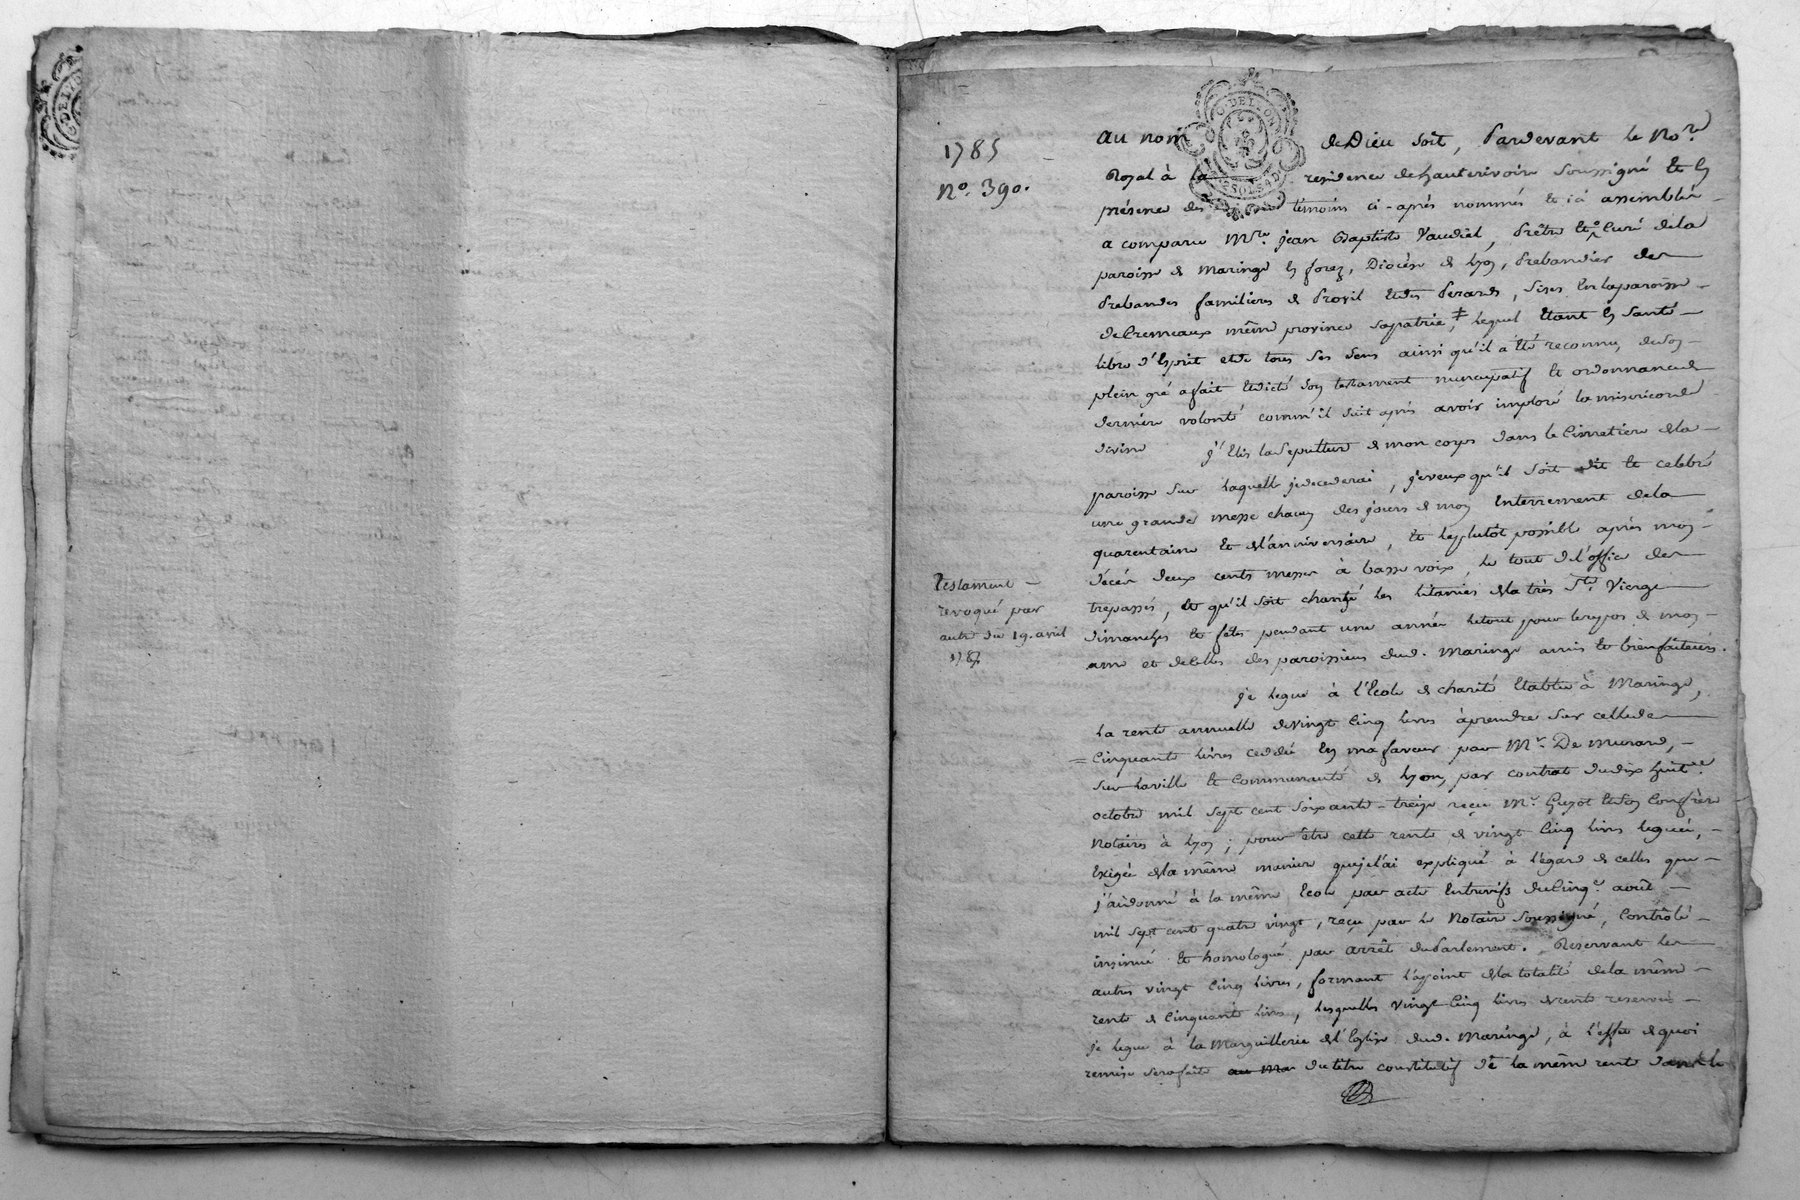 G. DE LYON
1785
nº. 390.
au nom de Dieu soit, Pardevant le No.re
Royal à la residence de hauterivoire soussigné et en
présence des témoins ci-après nommés et ici assemblés
a comparu Mre. jean Baptiste Vaudial, Prêtre et Curé de la
paroisse de Maringe en forez, Diocèse de lyon, Prebandier des
Prebandes familieres de Provil et des Perards, sises en la paroisse
de Cremeaux même province sa patrie, lequel étant en santé
libre d'esprit et de tous ses sens ainsi qu'il a été reconnu, de son
plein gré a fait et dicté son testament nuncupatif et ordonnance de
dernière volonté comm'il suit après avoir imploré la misericorde
divine j'élis la sepulture de mon corps dans le Cimetiere de la
paroisse sur laquelle je decederai, je veux qu'il soit dit et celebré
une grande messe chacun des jours de mon enterrement de la
quarentaine et de l'anniversaire, et le plutôt possible après mon
décès deux cents messes à basse voix, le tout de l'office des
trepassés, et qu'il soit chanté les litanies de la très Ste. Vierge
dimanches et fêtes pendant une année le tout pour le repos de mon
ame et de celles des paroissiens dud. Maringe amis et bienfaiteurs.
Testament
revoqué par
autre du 19. avril
178
je legue à l'école de charité établie à Maringe,
la rente annuelle de vingt cinq livres à prendre sur celle de
cinquante livres ceddée en ma faveur par Mr. De Murard,
sur la ville et Communauté de lyon, par contrat du dix huit.e
octobre mil sept cent soixante-treize reçu Me. Guyot et son Confrère
Notaires à lyon; pour être cette rente de vingt cinq livres leguée,
exigée de la même maniere que je l'ai expliqué à l'égard de celles que
j'ai donné à la même école par acte entrevifs du cinq.e août
mil sept cent quatre vingt, reçu par le Notaire soussigné, Contrôlé
insinué et homologué par arrêt du Parlement. Reservant les
autres vingt cinq livres, formant l'appoint de la totalité de la même
rente de cinquante livres, lesquelles vingt-cinq livres de rente reservées
je legue à la Marguillerie de l'église dud. Maringe, à l'effet de quoi
remise sera faite au Ma du titre constitutif de la même rente dans le